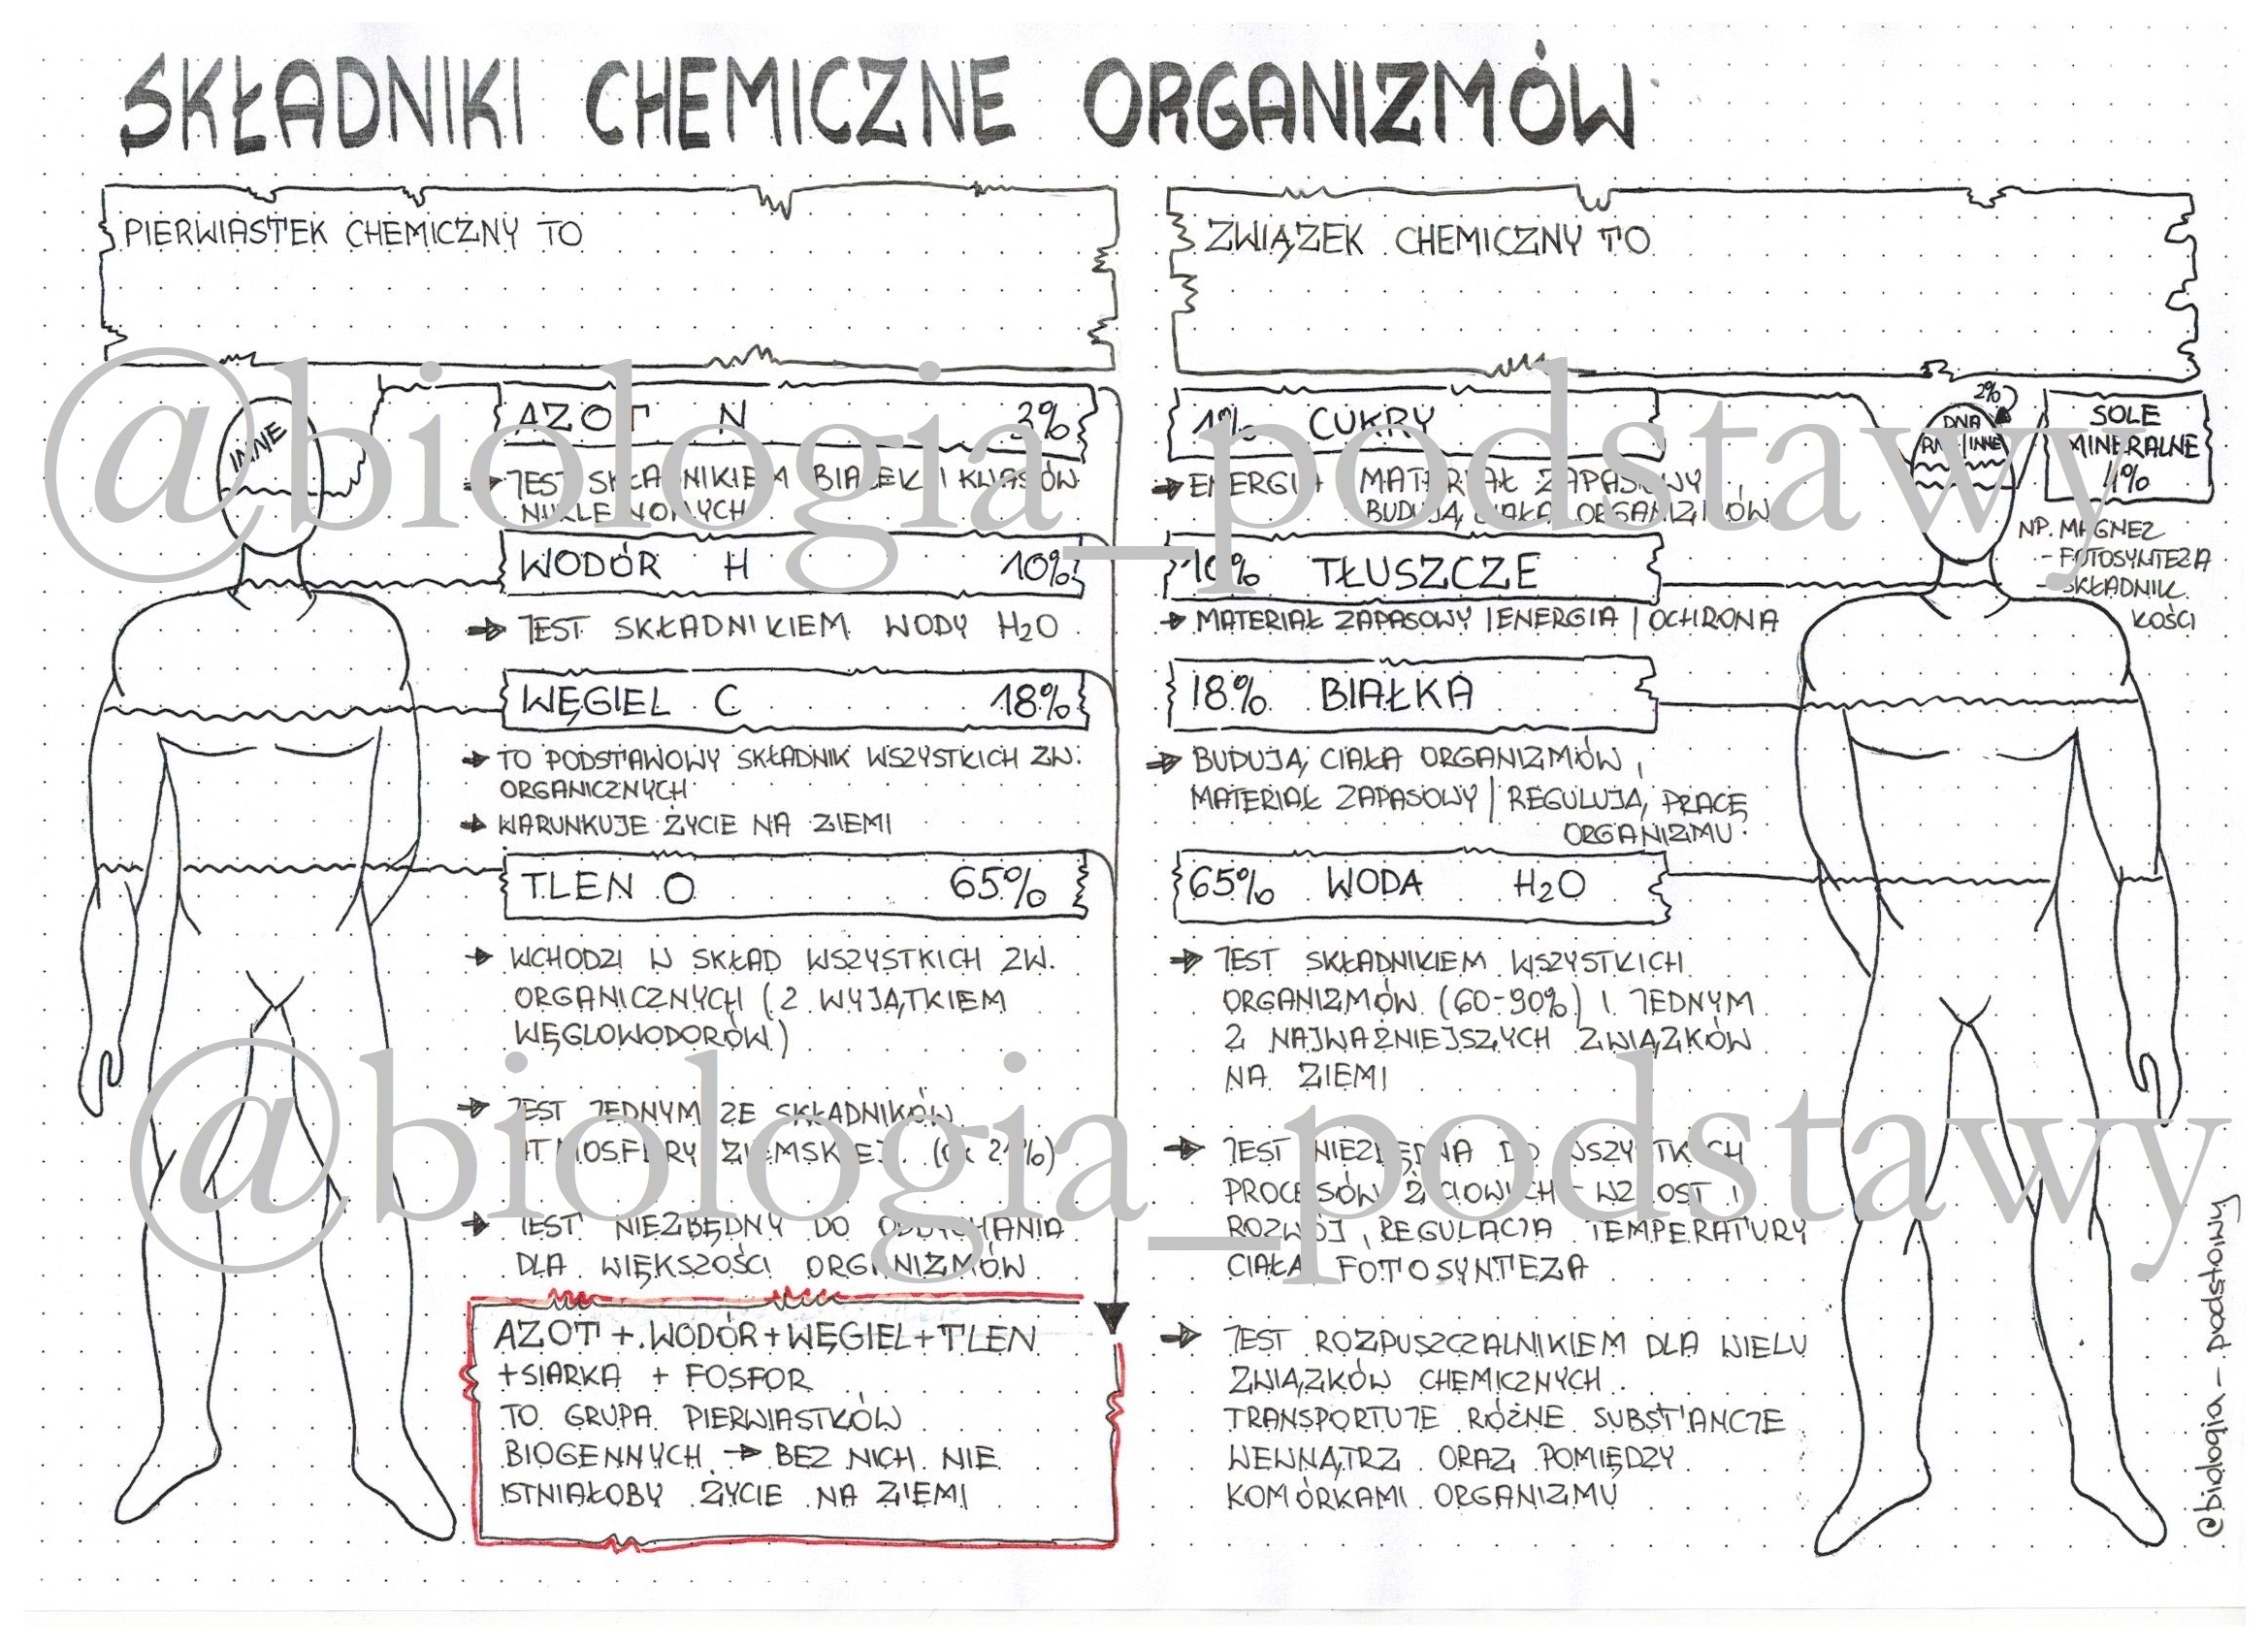 SKŁADNIKI CHEMICZNE ORGANIZMÓW
PIERWIASTEK CHEMICZNY TO
INNE
AZOT N 3%
→ JEST SKŁADNIKIEM BIAŁEK I KWASÓW
NUKLEINOWYCH
WODÓR H 10%
→ JEST SKŁADNIKIEM WODY H₂O
WĘGIEL C 18%
→ TO PODSTAWOWY SKŁADNIK WSZYSTKICH ZW.
ORGANICZNYCH
→ WARUNKUJE ŻYCIE NA ZIEMI
TLEN O 65%
→ WCHODZI W SKŁAD WSZYSTKICH ZW.
ORGANICZNYCH (Z WYJĄTKIEM
WĘGLOWODORÓW)
→ JEST JEDNYM ZE SKŁADNIKÓW
ATMOSFERY ZIEMSKIEJ (OK 21%)
→ JEST NIEZBĘDNY DO ODDYCHANIA
DLA WIĘKSZOŚCI ORGANIZMÓW
AZOT + WODÓR + WĘGIEL + TLEN
+ SIARKA + FOSFOR
TO GRUPA PIERWIASTKÓW
BIOGENNYCH → BEZ NICH NIE
ISTNIAŁOBY ŻYCIE NA ZIEMI
ZWIĄZEK CHEMICZNY TO
1% CUKRY
→ ENERGIA MATERIAŁ ZAPASOWY
BUDUJĄ CIAŁA ORGANIZMÓW
10% TŁUSZCZE
→ MATERIAŁ ZAPASOWY | ENERGIA | OCHRONA
18% BIAŁKA
→ BUDUJĄ CIAŁA ORGANIZMÓW,
MATERIAŁ ZAPASOWY | REGULUJĄ PRACĘ
ORGANIZMU
65% WODA H₂O
→ JEST SKŁADNIKIEM WSZYSTKICH
ORGANIZMÓW (60-90%) I JEDNYM
Z NAJWAŻNIEJSZYCH ZWIĄZKÓW
NA ZIEMI
→ JEST NIEZBĘDNA DO WSZYSTKICH
PROCESÓW ŻYCIOWYCH - WZROST I
ROZWÓJ, REGULACJA TEMPERATURY
CIAŁA FOTOSYNTEZA
→ JEST ROZPUSZCZALNIKIEM DLA WIELU
ZWIĄZKÓW CHEMICZNYCH
TRANSPORTUJE RÓŻNE SUBSTANCJE
WEWNĄTRZ ORAZ POMIĘDZY
KOMÓRKAMI ORGANIZMU
2%
DNA
RNA | INNE
SOLE
MINERALNE
1%
NP. MAGNEZ
- FOTOSYNTEZA
- SKŁADNIK
KOŚCI
@biologia_podstawy
@biologia_podstawy
@biologia_podstawy